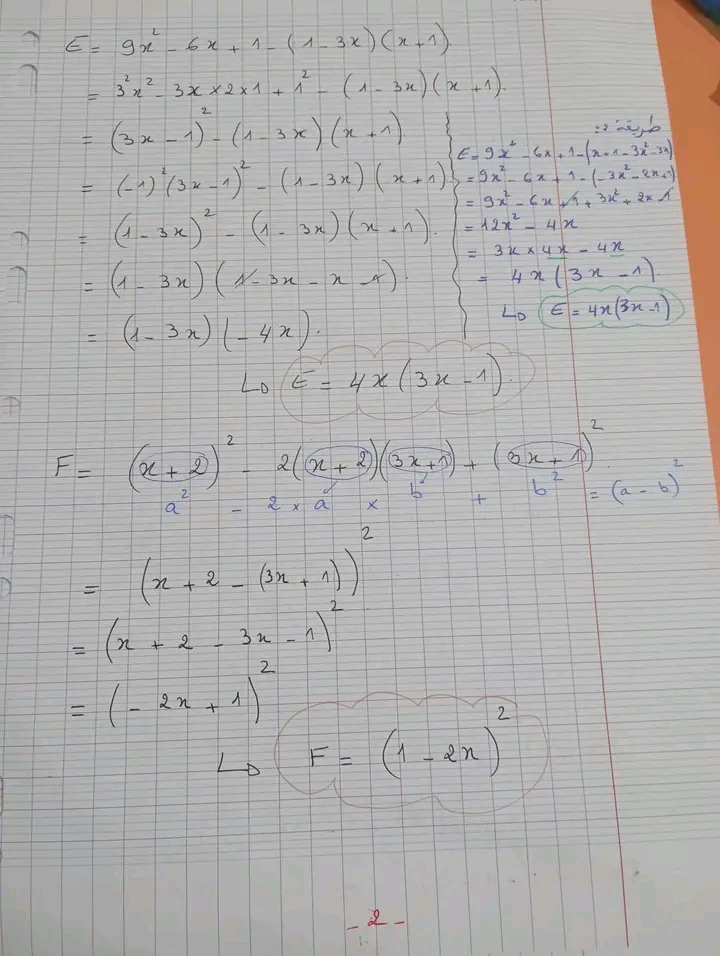 E = 9x² - 6x + 1 - (1 - 3x)(x + 1).
= 3²x² - 3x × 2 × 1 + 1² - (1 - 3x)(x + 1).
= (3x - 1)² - (1 - 3x)(x + 1).
= (-1)²(3x - 1)² - (1 - 3x)(x + 1)
= (1 - 3x)² - (1 - 3x)(x + 1).
= (1 - 3x)(1 - 3x - x - 1).
= (1 - 3x)(-4x).
E = 4x(3x - 1).
طريقة 2:
E = 9x² - 6x + 1 - (x + 1 - 3x² - 3x)
= 9x² - 6x + 1 - (-3x² - 2x + 1)
= 9x² - 6x + 1 + 3x² + 2x - 1
= 12x² - 4x
= 3x × 4x - 4x
= 4x(3x - 1).
E = 4x(3x - 1)
F = (x + 2)² - 2(x + 2)(3x + 1) + (3x + 1)².
a² - 2 × a × b + b² = (a - b)²
= (x + 2 - (3x + 1))²
= (x + 2 - 3x - 1)²
= (-2x + 1)²
F = (1 - 2x)²
- 2 -